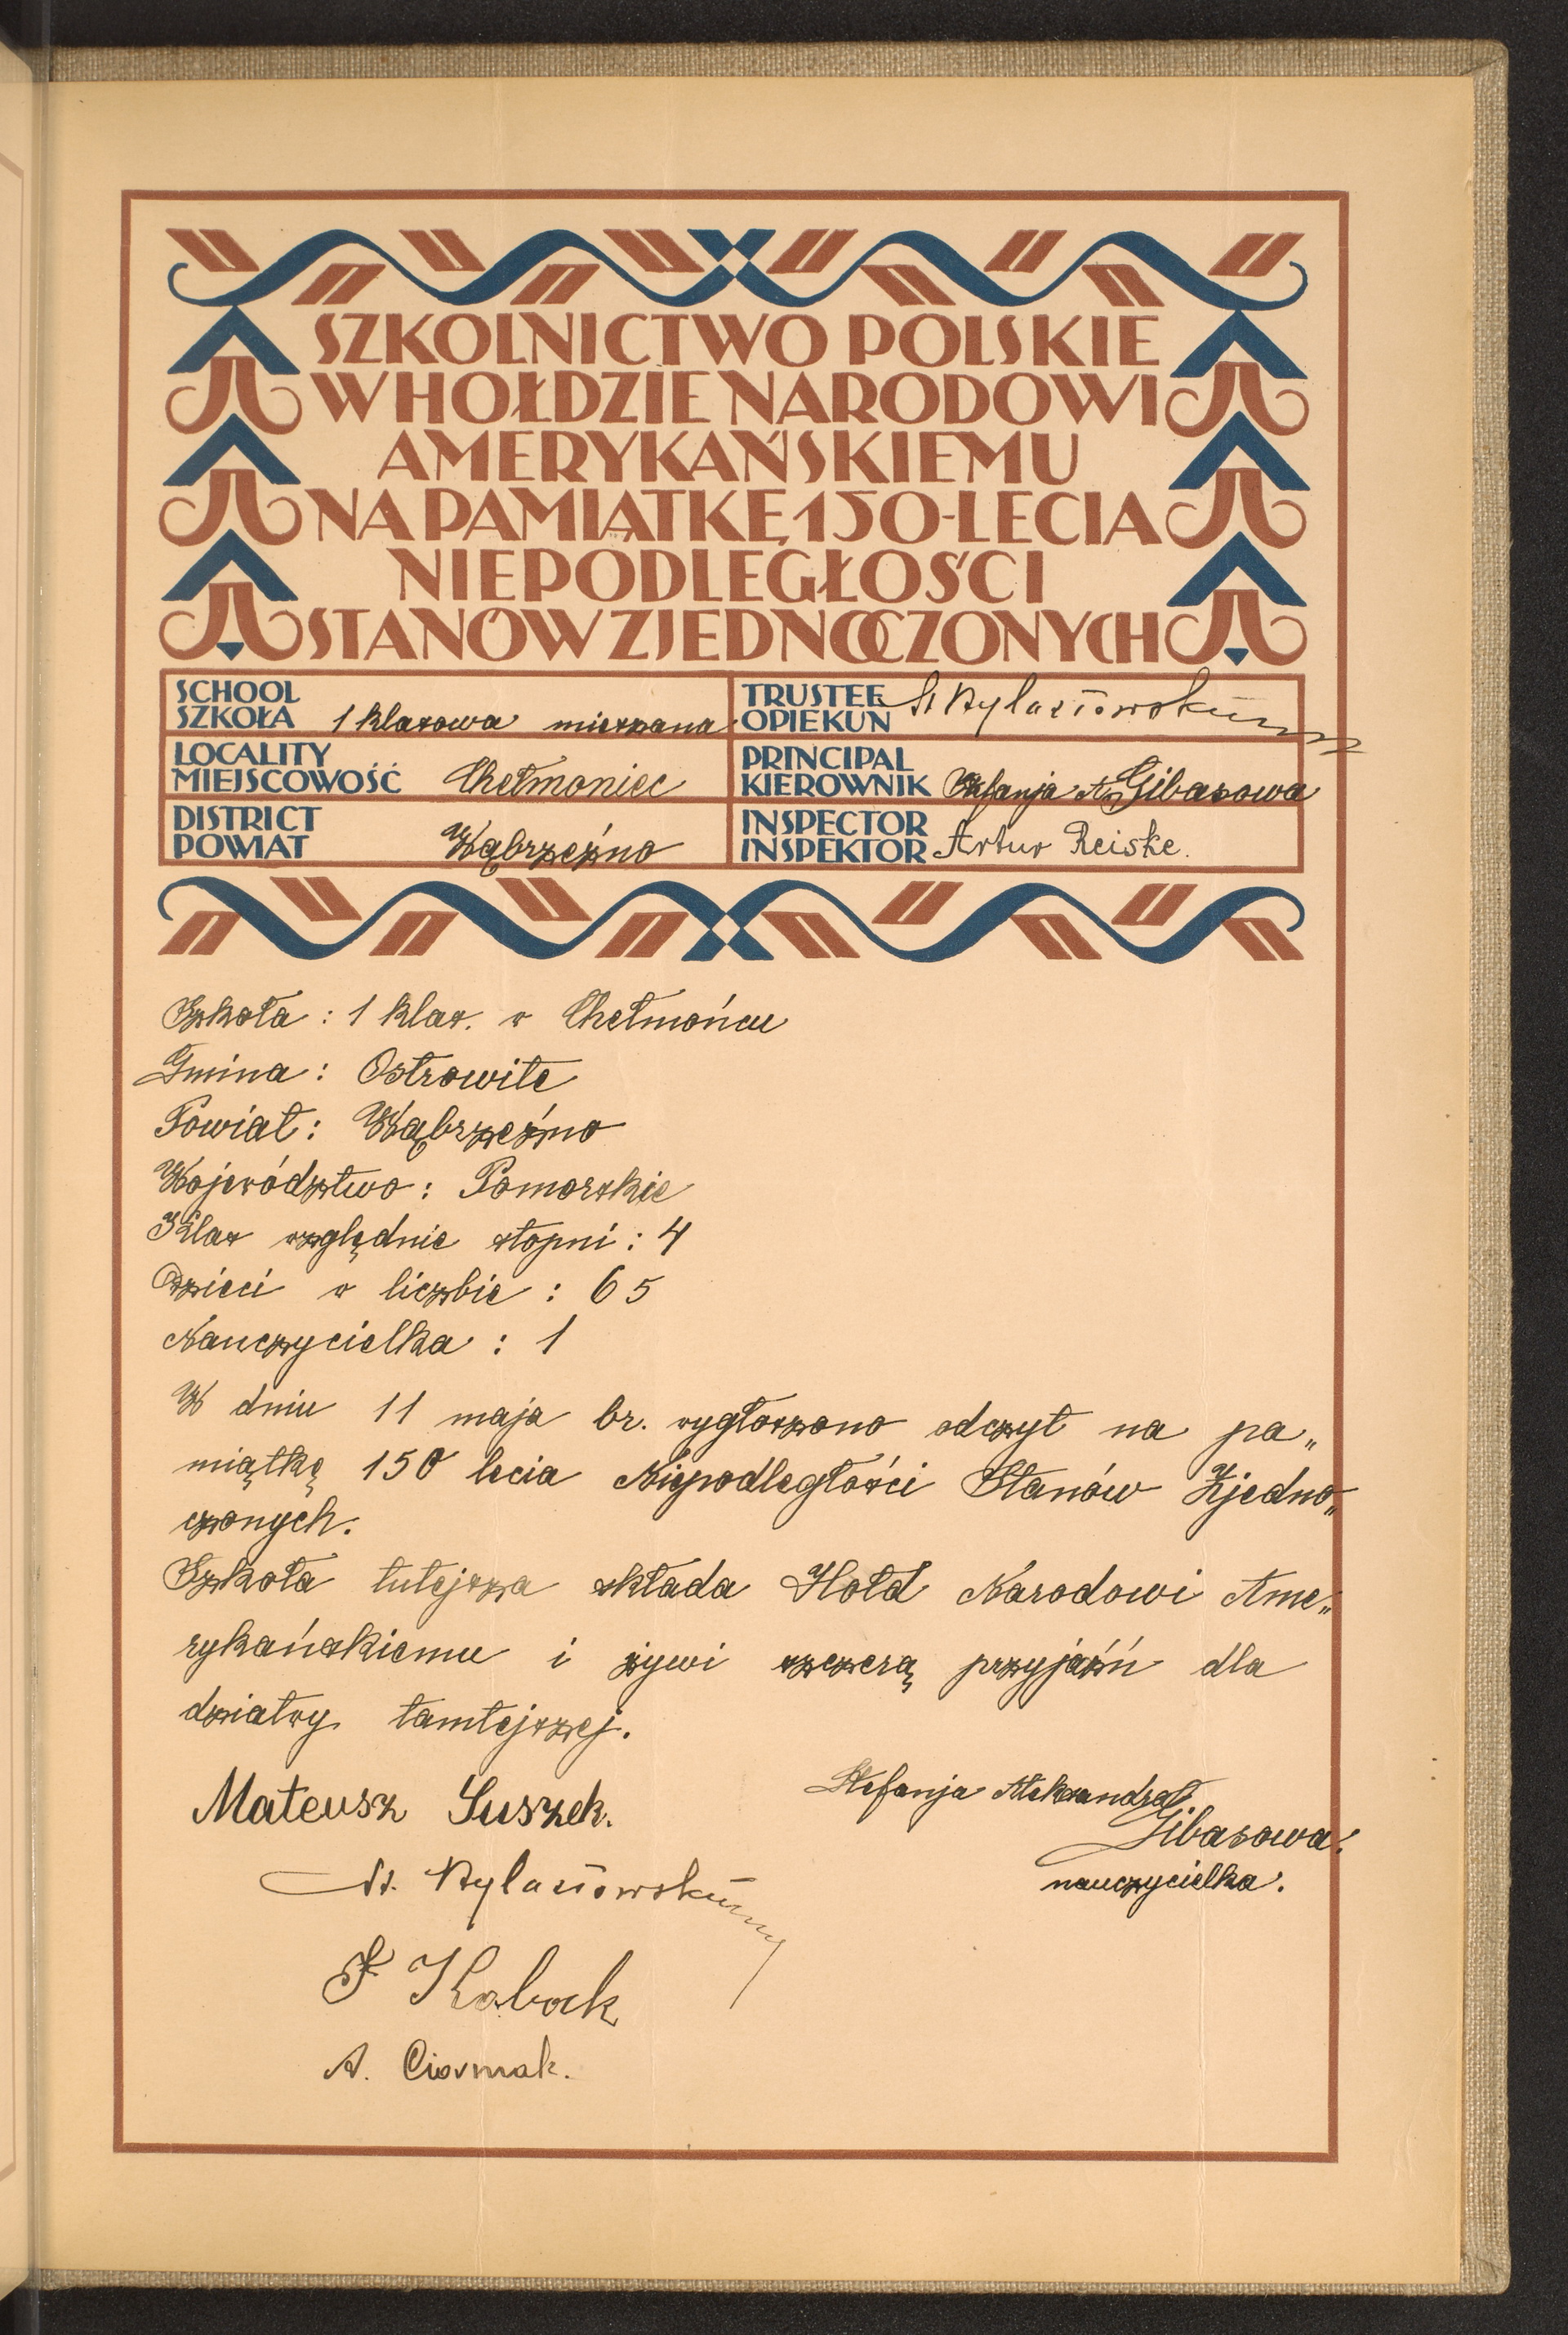 SZKOLNICTWO POLSKIE
W HOŁDZIE NARODOWI
AMERYKAŃSKIEMU
NA PAMIĄTKĘ 150-LECIA
NIEPODLEGŁOŚCI
STANÓW ZJEDNOCZONYCH
SCHOOL
SZKOŁA 1 klasowa mieszana
TRUSTEE
OPIEKUN St
LOCALITY
MIEJSCOWOŚĆ Chełmoniec
PRINCIPAL
KIEROWNIK Stefanja A. Gibasowa
DISTRICT
POWIAT Wąbrzeźno
INSPECTOR
INSPEKTOR Artur Reiske.
Szkoła : 1 klas. w Chełmońcu
Gmina : Ostrowite
Powiat : Wąbrzeźno
Województwo : Pomorskie
Klas względnie stopni : 4
Dzieci w liczbie : 65
Nauczycielka : 1
W dniu 11 maja br. wygłoszono odczyt na pa„
miątkę 150 lecia Niepodległości Stanów Zjedno„
czonych.
Szkoła tutejsza składa Hołd Narodowi Ame„
rykańskiemu i żywi szczerą przyjaźń dla
dziatwy tamtejszej.
Mateusz Suszek.
Stefanja Aleksandra
Gibasowa.
nauczycielka.
St.
F Kabock
A. Ciosmak.